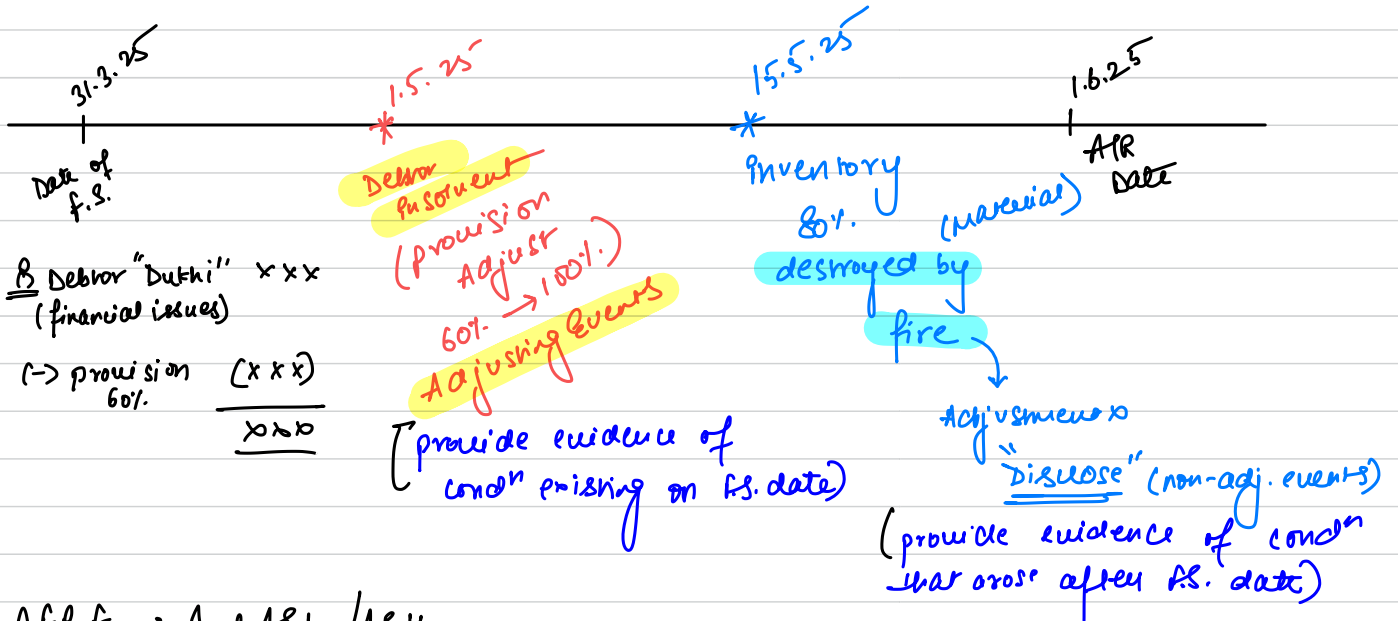 31.3.25
Date of
F.S.
B Debtor "Dukhi" xxx
(financial issues)
(-) provision (xxx)
60%.
xxx
1.5.25
Debtor
insolvent
(provision
Adjust
60%. → 100%.)
Adjusting Events
[provide evidence of
condn existing on F.S. date)
15.5.25
inventory
80%. (material)
destroyed by
fire
Adjustment x
"Disclose" (non-adj. events)
(provide evidence of condn
that arose after F.S. date)
1.6.25
A/R
Date